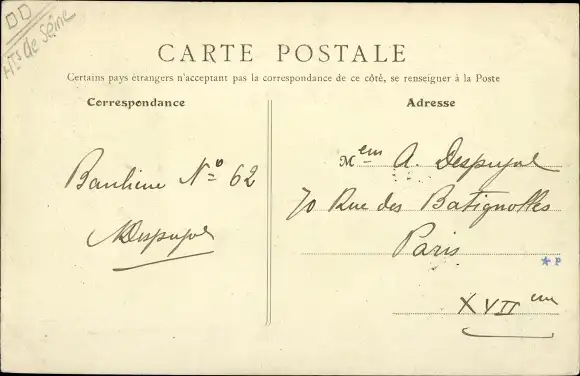 Hts de Seine
CARTE POSTALE
Certains pays étrangers n'acceptant pas la correspondance de ce côté, se renseigner à la Poste
Correspondance
Banlieue No 62
ADespujol
Adresse
Mem A. Despujol
70 Rue des Batignolles
Paris
* P
XVIIem